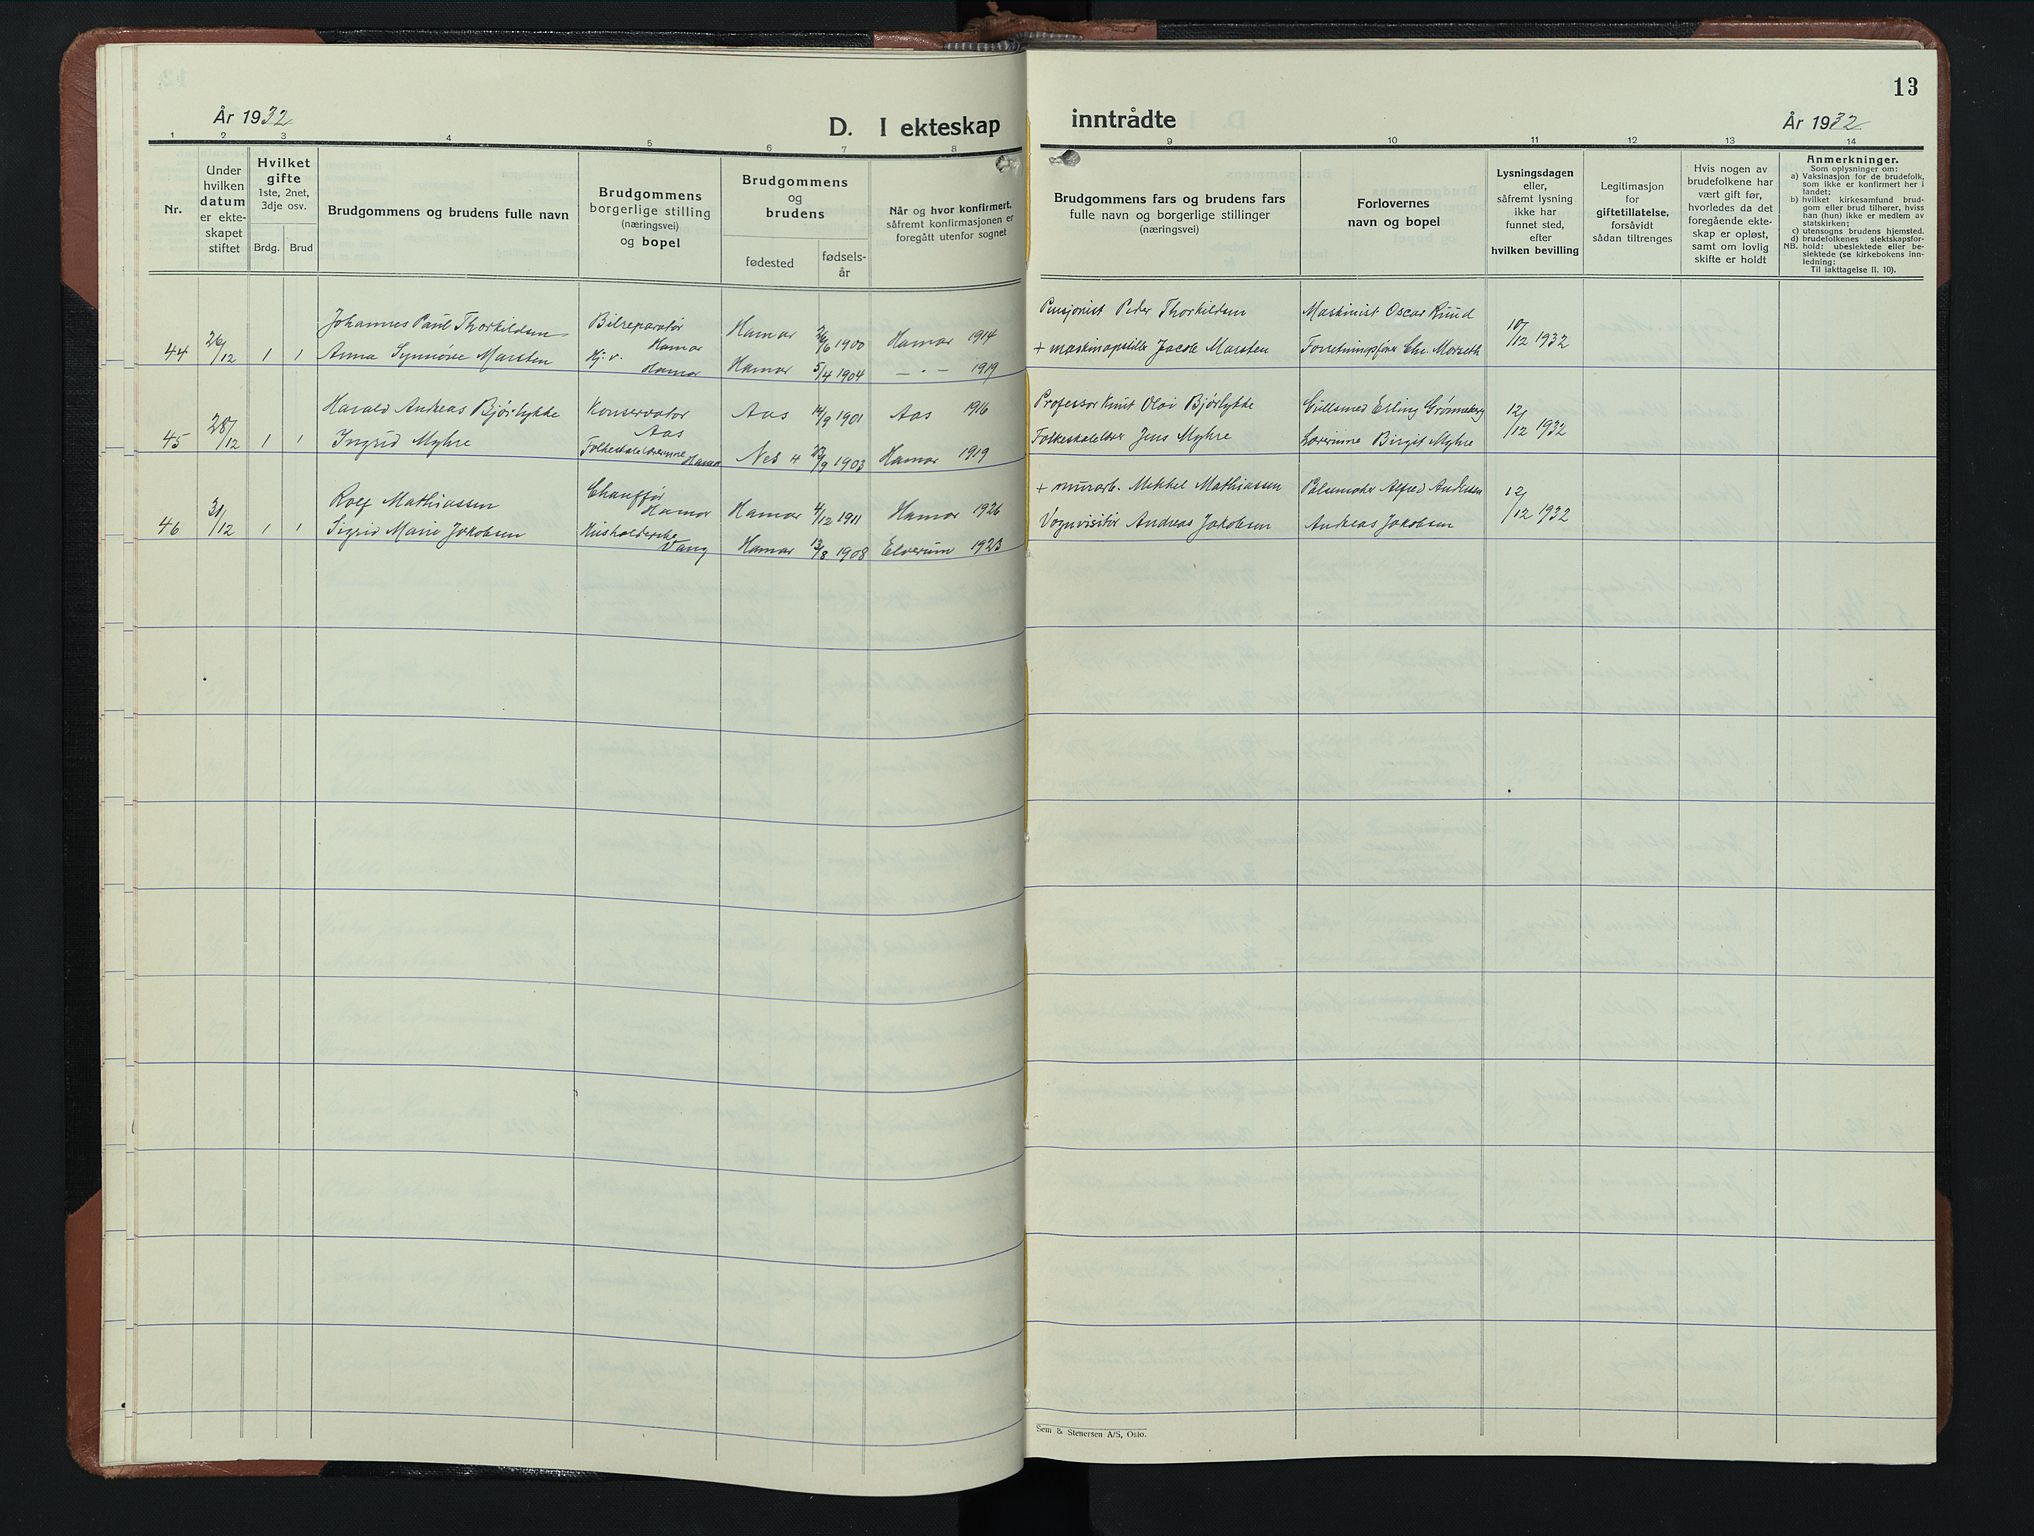 13
År 1932
D. I ekteskap
inntrådte
År 1932
1 2 3 4 5 6 7 8 9 10 11 12 13 14
Nr.
Under
hvilken
datum
er ekte-
skapet
stiftet
Hvilket
gifte
1ste, 2net,
3dje osv.
Brdg. Brud
Brudgommens og brudens fulle navn
Brudgommens
borgerlige stilling
(næringsvei)
og bopel
Brudgommens
og
brudens
fødested
fødsels-
år
Når og hvor konfirmert,
såfremt konfirmasjonen er
foregått utenfor sognet
Brudgommens fars og brudens fars
fulle navn og borgerlige stillinger
(næringsvei)
Forlovernes
navn og bopel
Lysningsdagen
eller,
såfremt lysning
ikke har
funnet sted,
efter
hvilken bevilling
Legitimasjon
for
giftetillatelse,
forsåvidt
sådan tiltrenges
Hvis nogen av
brudefolkene har
vært gift før,
hvorledes da det
foregående ekte-
skap er opløst,
samt om lovlig
skifte er holdt
Anmerkninger.
Som oplysninger om:
a) Vaksinasjon for de brudefolk,
som ikke er konfirmert her i
landet;
b) hvilket kirkesamfund brud-
gom eller brud tilhører, hviss
han (hun) ikke er medlem av
statskirken;
c) utensogns brudens hjemsted.
d) brudefolkenes slektskapsfor-
NB. hold: ubeslektede eller be-
slektede (se kirkebokens inn-
ledning:
Til iakttagelse II. 10).
Johannes Paul Thorkildsen Bilreparatør Hamar Hamar 26/6 1900 Hamar 1914 Pensjonist Peder Thorkildsen Maskinist Oscar Ruud
44 26/12 1 1 Anna Synnøve Marsten Hj. v. Hamar Hamar 5/4 1904 — " — 1919 + maskinopsitter Jacob Marsten Forretningsfører Chr. Morseth 10/12 1932
Harald Andreas Bjørlykke Konservator Aas Aas 14/9 1901 Aas 1916 Professor Knut Olai Bjørlykke Gullsmed Erling Grønneberg
45 28/12 1 1 Ingrid Myhre Folkeskolelærerinne Hamar Nes H 22/9 1903 Hamar 1919 Folkeskolelærer Jens Myhre Lærerinne Birgit Myhre 12/12 1932
Rolf Mathiassen Chauffør Hamar Hamar 4/12 1911 Hamar 1926 + murarb. Mekkel Mathiassen Pølsemaker Alfred Andersen
46 31/12 1 1 Sigrid Marie Jakobsen Husholderske Vang Hamar 13/8 1908 Elverum 1923 Vognvisitør Andreas Jakobsen Andreas Jakobsen 12/12 1932
Sem & Stenersen A/S, Oslo.